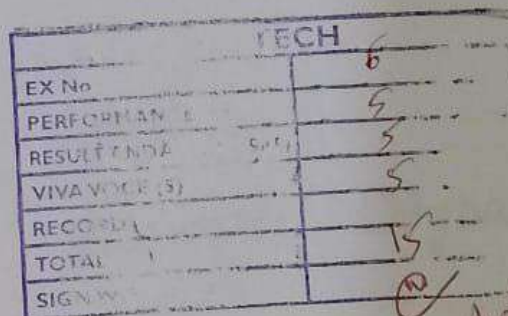 TECH
EX No 6
PERFORMAN 5
RESULT 5
VIVA VOCE (5) 5
RECO
TOTAL 15
SIGN